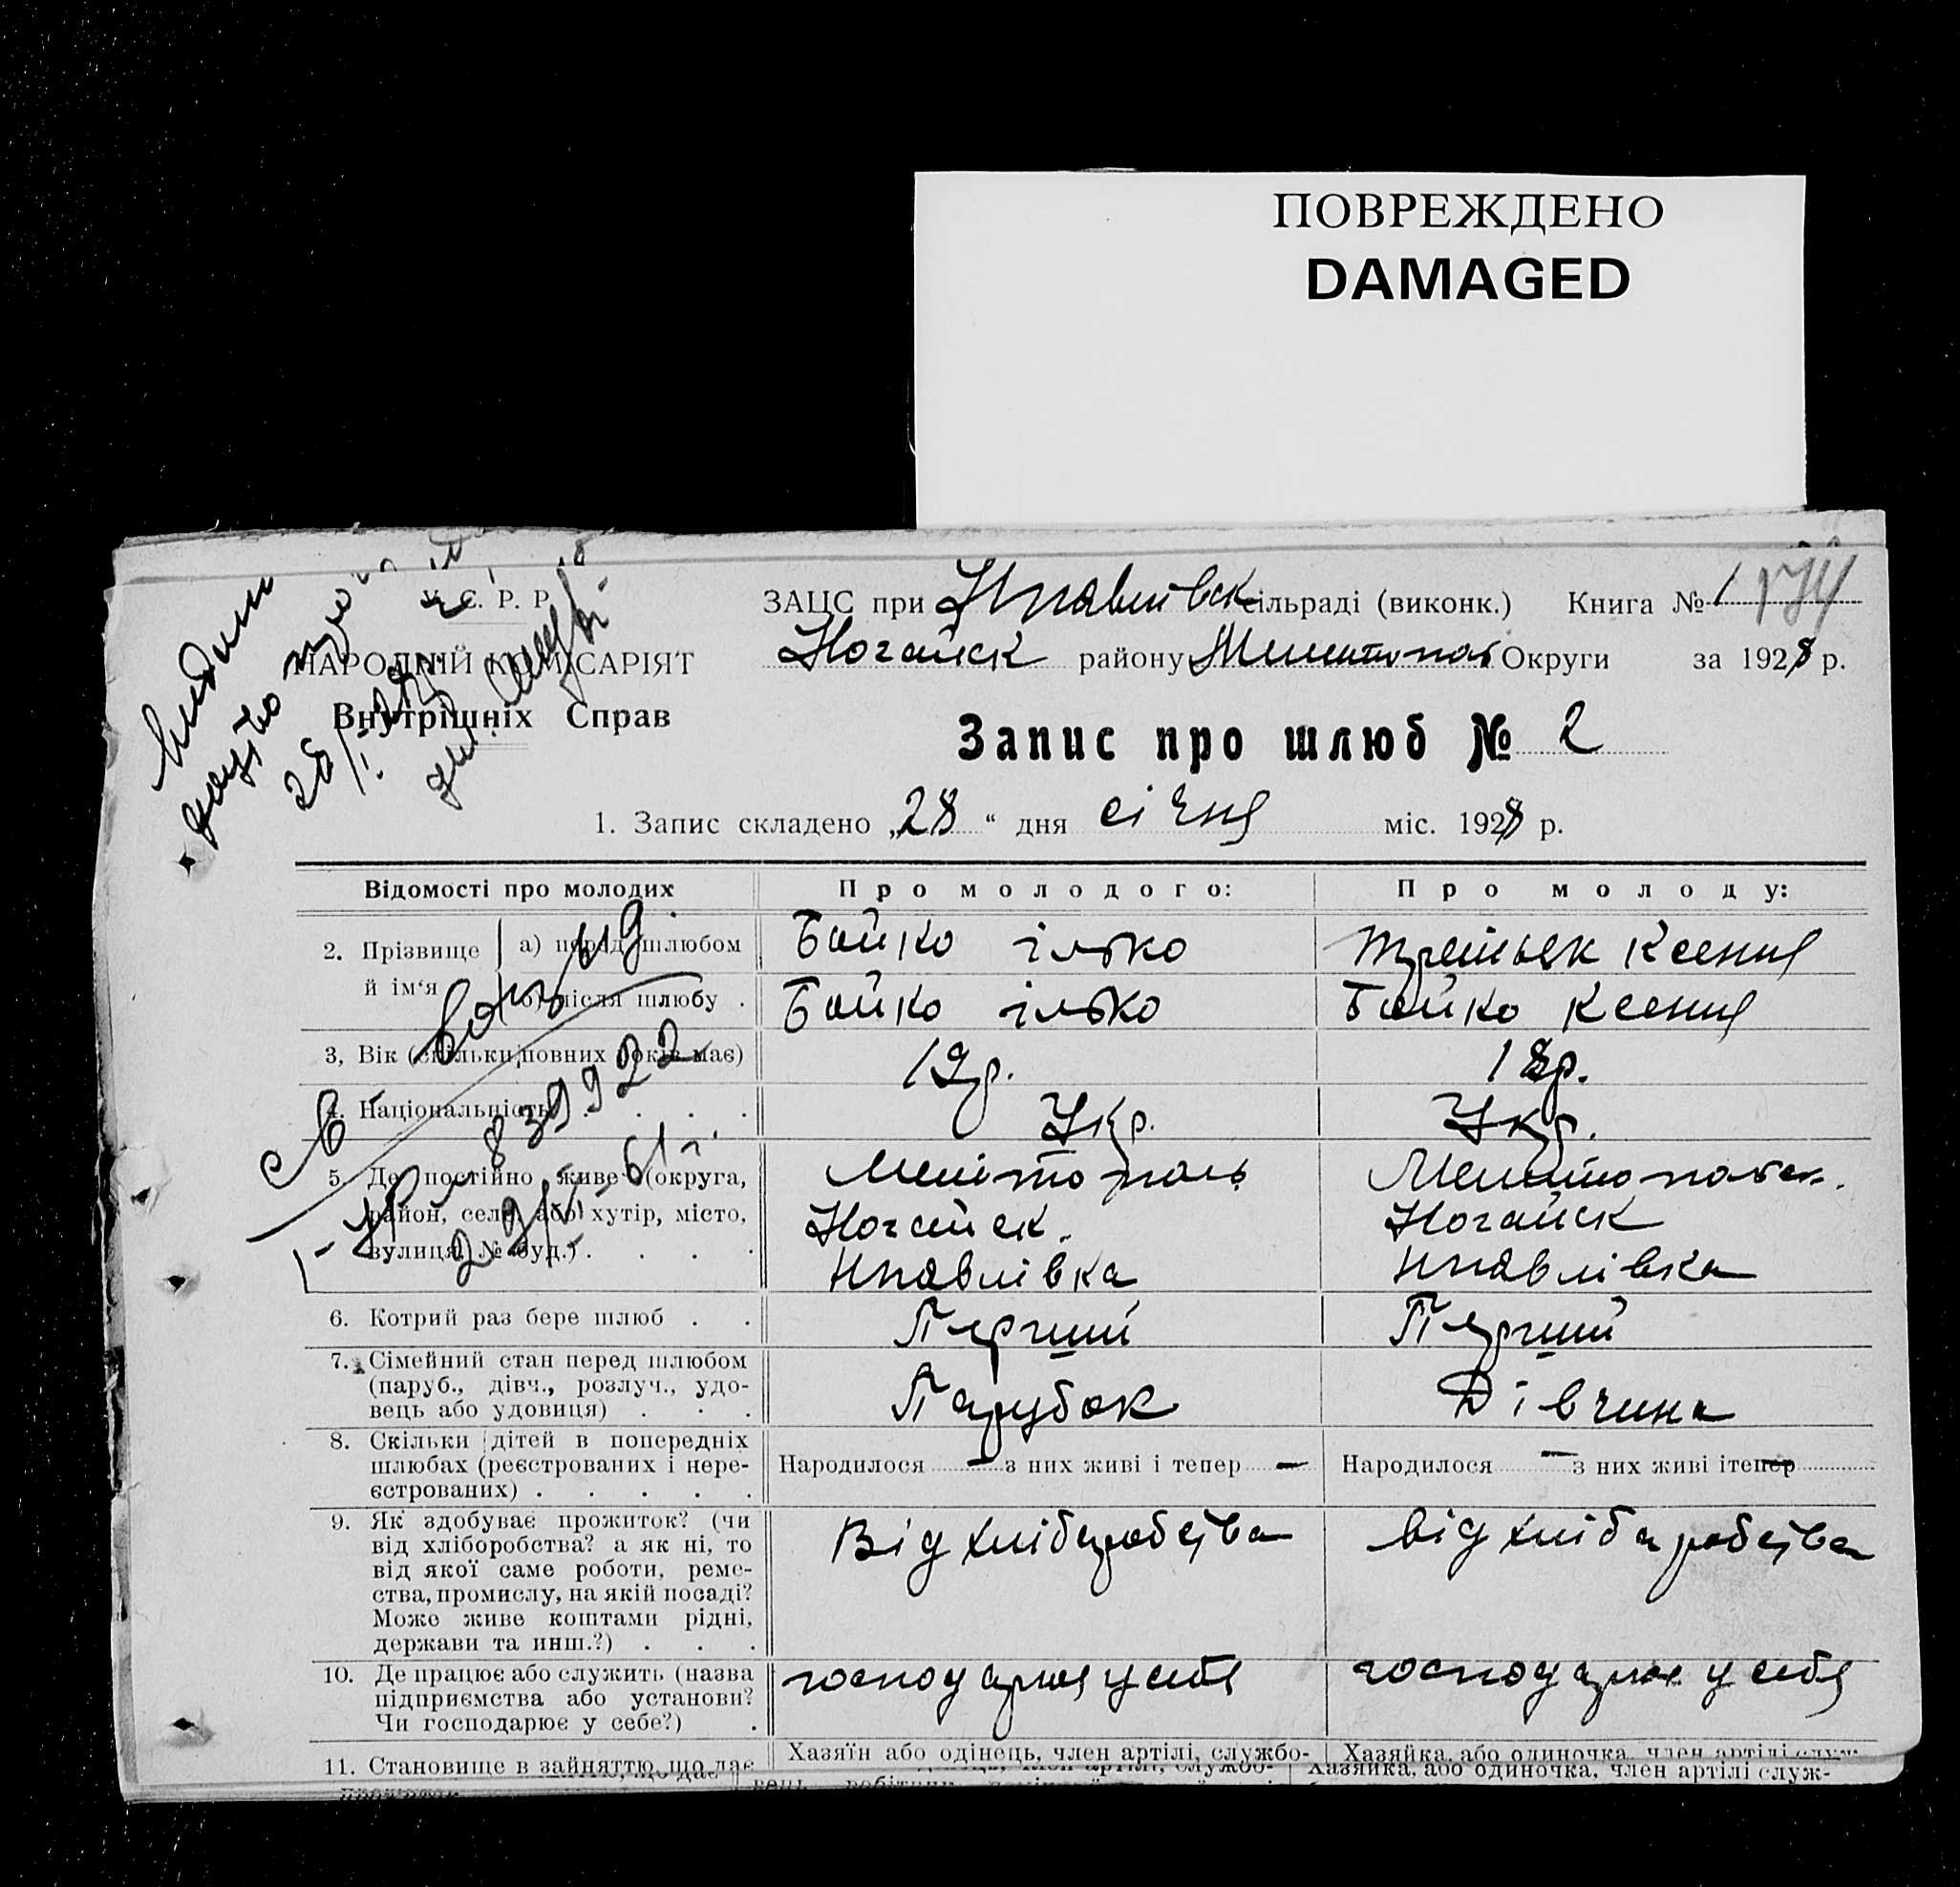 ПОВРЕЖДЕНО
DAMAGED
У. С. Р. Р.
НАРОДНІЙ КОМІСАРІЯТ
Внутрішніх Справ
ЗАЦС при Нпавлівск сільраді (виконк.) Книга № 1 174
Ногайск району Мелітопол Округи за 1928 р.
Запис про шлюб № 2
1. Запис складено „28“ дня січня міс. 1928 р.
28/I.
Відомості про молодих
Про молодого:
Про молоду:
2. Прізвище й ім‘я
а) перед шлюбом
Бойко Ілько
Третьяк Ксения
б) після шлюбу .
Бойко Ілько
Бойко Ксения
3, Вік (скільки повних років має)
19 р.
18 р.
4. Національність . . . .
Укр.
Укр.
839922
5. Де постійно живе (округа,
район, село, або хутір, місто,
вулиця, № буд.) . . . .
Мелітополь
Ногайск.
Нпавлівка
Мелитопольск.
Ногайск
Нпавлівка
6. Котрий раз бере шлюб . .
Перший
Перший
7. Сімейний стан перед шлюбом
(паруб., дівч., розлуч., удо-
вець або удовиця) . . .
Парубок
Дівчина
8. Скільки дітей в попередніх
шлюбах (реєстрованих і нере-
єстрованих) . . . . .
Народилося — з них живі і тепер —
Народилося — з них живі ітепер —
9. Як здобуває прожиток? (чи
від хліборобства? а як ні, то
від якої саме роботи, реме-
ства, промислу, на якій посаді?
Може живе коштами рідні,
держави та инш.?) . . .
Від хлібаробства
від хлібаробства
10. Де працює або служить (назва
підприємства або установи?
Чи господарює у себе?) .
господарює у себе
господарює у себя
11. Становище в зайняттю, що дає
Хазяїн або одінець, член артілі, службо-
Хазяйка, або одиночка, член артілі служ-